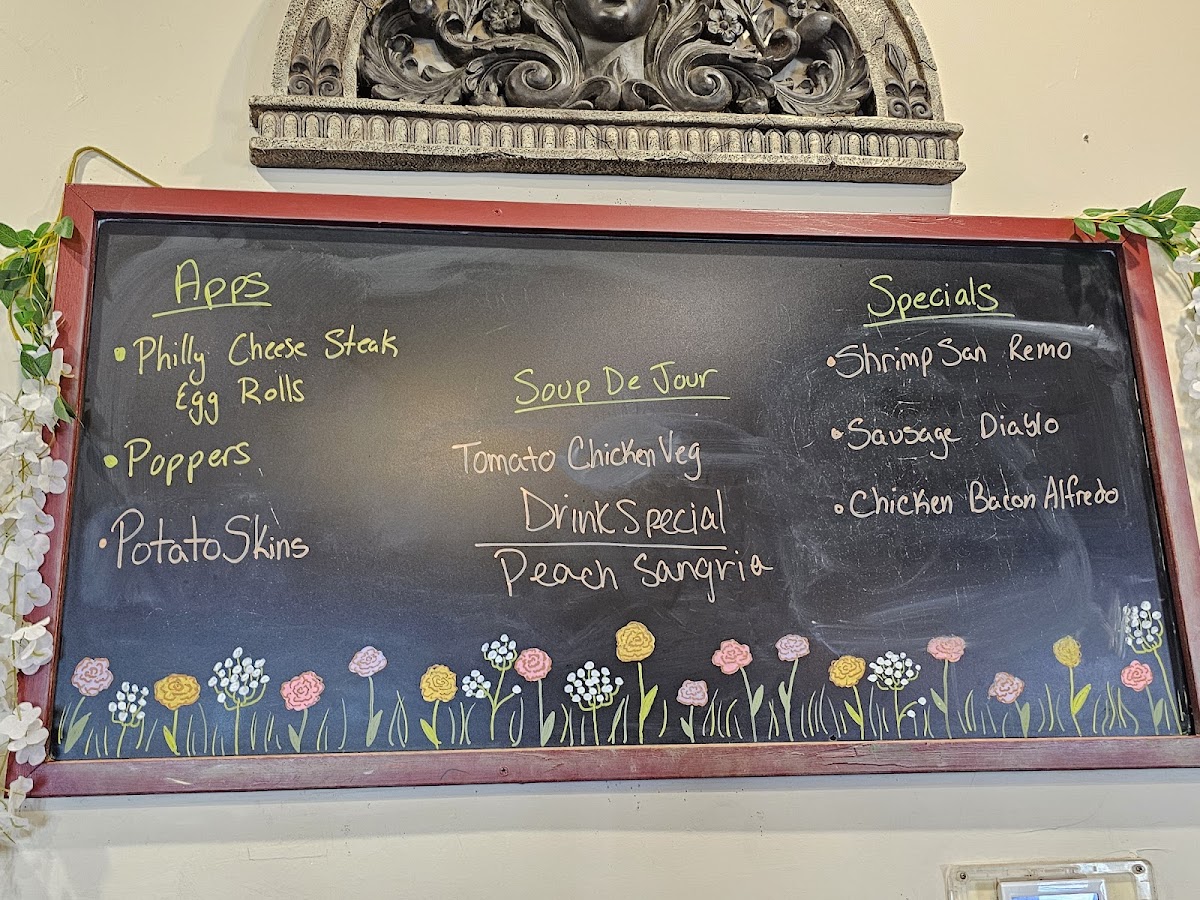 Apps
• Philly Cheese Steak
Egg Rolls
• Poppers
• Potato Skins
Soup De Jour
Tomato Chicken Veg
Drink Special
Peach Sangria
Specials
• Shrimp San Remo
• Sausage Diablo
• Chicken Bacon Alfredo